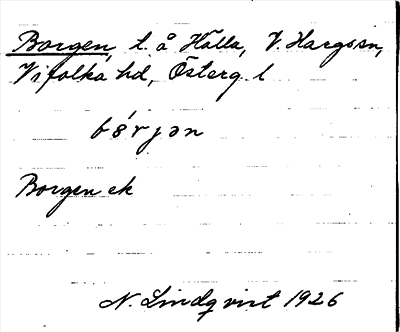 Borgen, t. å Hälla, V. Hargs sn,
Vifolka hd, Österg. l
bo̜rjən
Borgen ek
N. Lindqvist 1926